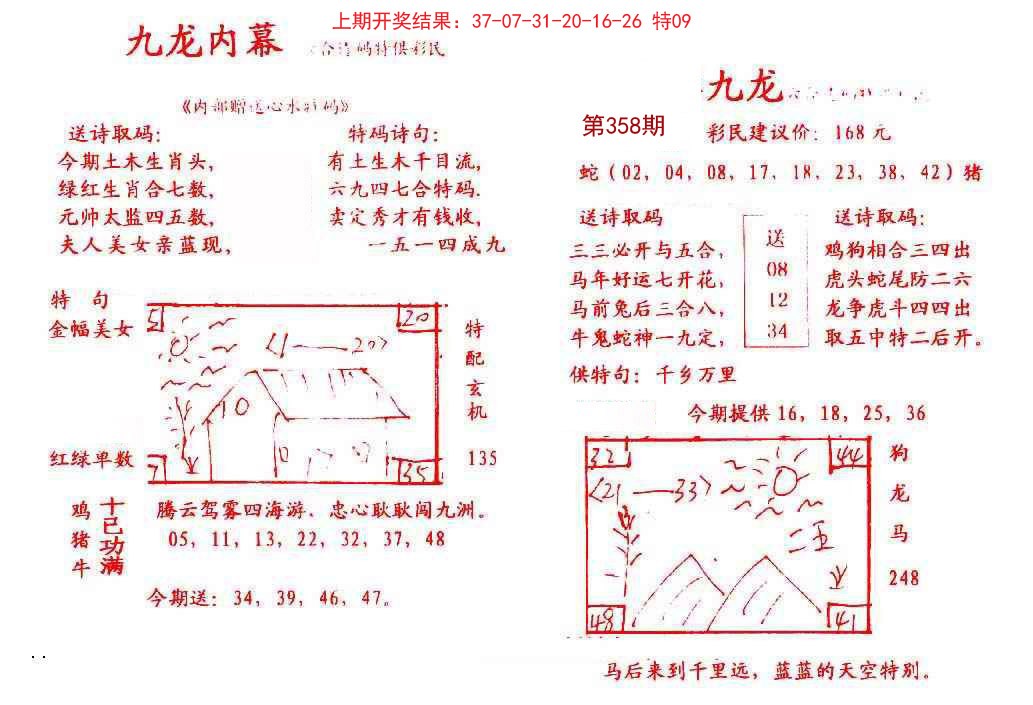 上期开奖结果：37-07-31-20-16-26 特09
九龙内幕
合 码特供彩民
《内部赠送心水特码》
送诗取码：
今期土木生肖头，
绿红生肖合七数，
元帅太监四五数，
夫人美女亲蓝现，
特码诗句：
有土生木千目流，
六九四七合特码.
卖定秀才有钱收，
一五一四成九
特 句
金幅美女
红绿单数
5
20
〈1——20〉
10
35
7
特配玄机
135
鸡猪牛
十已功满
腾云驾雾四海游、忠心耿耿闯九洲。
05，11，13，22，32，37，48
今期送：34，39，46，47。
九龙
第358期
彩民建议价：168元
蛇（02，04，08，17，18，23，38，42）猪
送诗取码
三三必开与五合，
马年好运七开花，
马前兔后三合八，
牛鬼蛇神一九定，
送
08
12
34
送诗取码：
鸡狗相合三四出
虎头蛇尾防二六
龙争虎斗四四出
取五中特二后开。
供特句：千乡万里
今期提供16，18，25，36
32
44
〈21——33〉
二五
48
41
狗
龙
马
248
马后来到千里远，蓝蓝的天空特别。